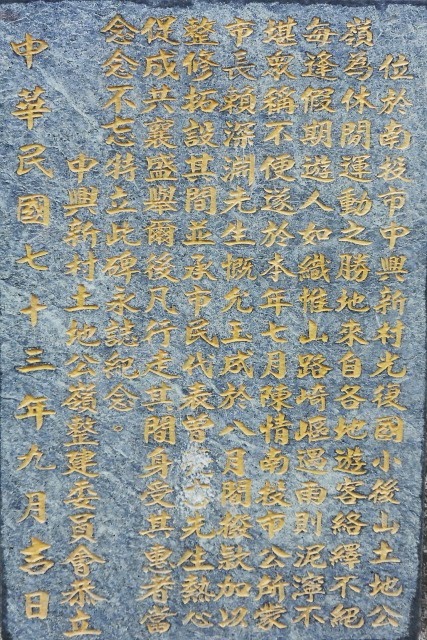 位於南投市中興新村光復國小後山土地公
嶺為休閒運動之勝地來自各地遊客絡繹不絕
每逢假期遊人如織惟山路崎嶇遇雨則泥濘不
堪眾稱不便遂於本年七月陳情南投市公所蒙
市長賴深淵先生慨允玉成於八月間撥款加以
整修拓設其間並承市民代表曾先生熱心
促成共襄盛舉爾後凡行走其間身受其惠者當
念念不忘特立此碑永誌紀念。
中興新村土地公嶺整建委員會恭立
中華民國七十三年九月吉日